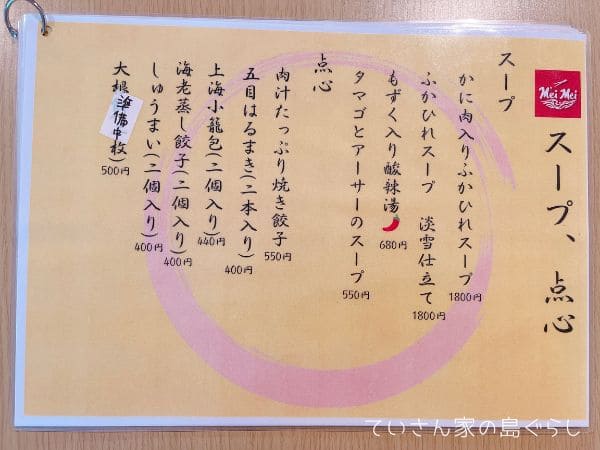 Mei Mei
スープ、点心
スープ
かに肉入りふかひれスープ
1800円
ふかひれスープ 淡雪仕立て
1800円
もずく入り酸辣湯
680円
タマゴとアーサーのスープ
550円
点心
肉汁たっぷり焼き餃子
550円
五目はるまき(二本入り)
400円
上海小籠包(二個入り)
440円
海老蒸し餃子(二個入り)
400円
しゅうまい(二個入り)
400円
大根準備中枚)
500円
ていさん家の島ぐらし